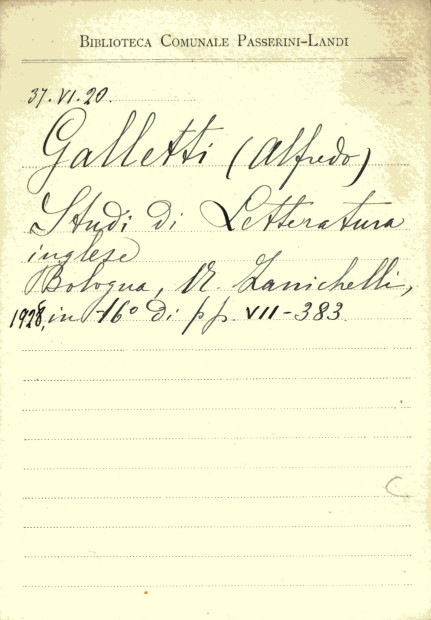 BIBLIOTECA COMUNALE PASSERINI-LANDI
37.VI.20.
Galletti (Alfredo)
Studi di Letteratura
inglese
Bologna, N. Zanichelli,
1928, in 16° di pp. VII-383